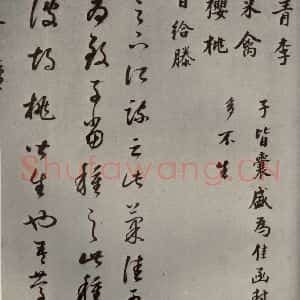 青李
来禽
櫻桃
日給滕
子皆囊盛為佳函封
多不生
足下所疏云此菓佳可
為致子當種之此種
彼胡桃皆生也吾篤
Shufawang.CN